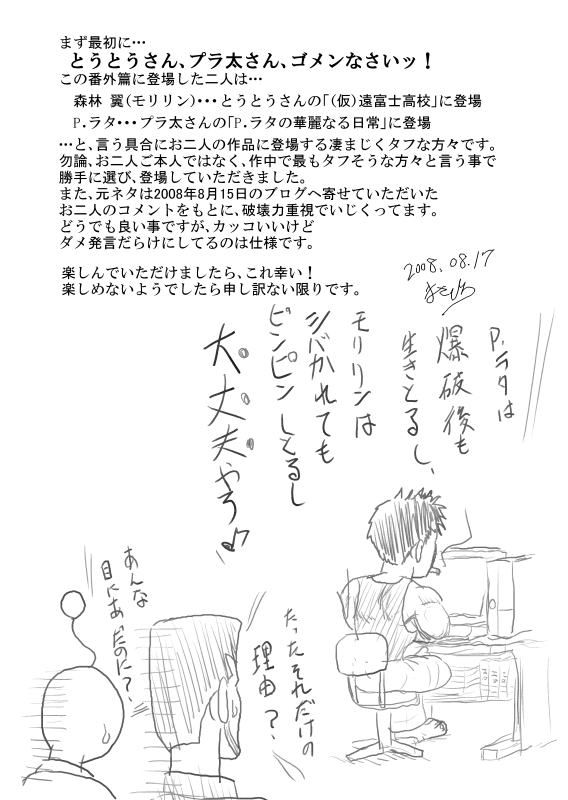 まず最初に…
とうとうさん、プラ太さん、ゴメンなさいッ！
この番外篇に登場した二人は…
森林 翼(モリリン)･･･とうとうさんの「(仮)遠富士高校」に登場
P.ラタ･･･プラ太さんの「P.ラタの華麗なる日常」に登場
…と、言う具合にお二人の作品に登場する凄まじくタフな方々です。
勿論、お二人ご本人ではなく、作中で最もタフそうな方々と言う事で
勝手に選び、登場していただきました。
また、元ネタは2008年8月15日のブログへ寄せていただいた
お二人のコメントをもとに、破壊力重視でいじくってます。
どうでも良い事ですが、カッコいいけど
ダメ発言だらけにしてるのは仕様です。
楽しんでいただけましたら、これ幸い！
楽しめないようでしたら申し訳ない限りです。
2008.08.17
P.ラタは
爆破後も
生きとるし、
モリリンは
シバかれても
ピンピンしとるし
大丈夫やろ♪
たったそれだけの
理由？
あんな
目にあったのに？